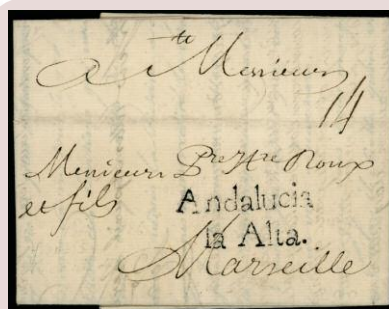 A Messieurs
14
Messieurs Pre Hre Roux
et fils
Andalucia
la Alta.
Marseille